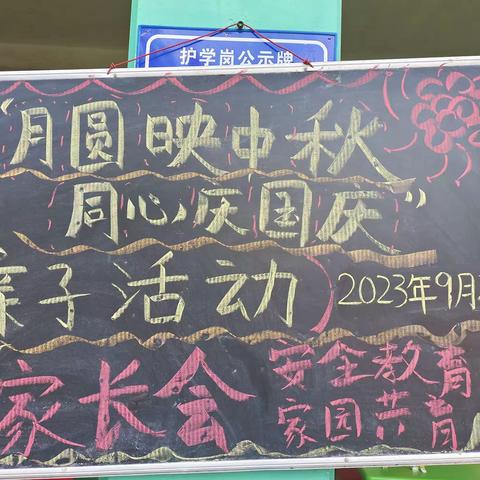 护学岗公示牌
“月圆映中秋
同心庆国庆”
亲子活动 2023年9月
家长会 安全教育
家园共育